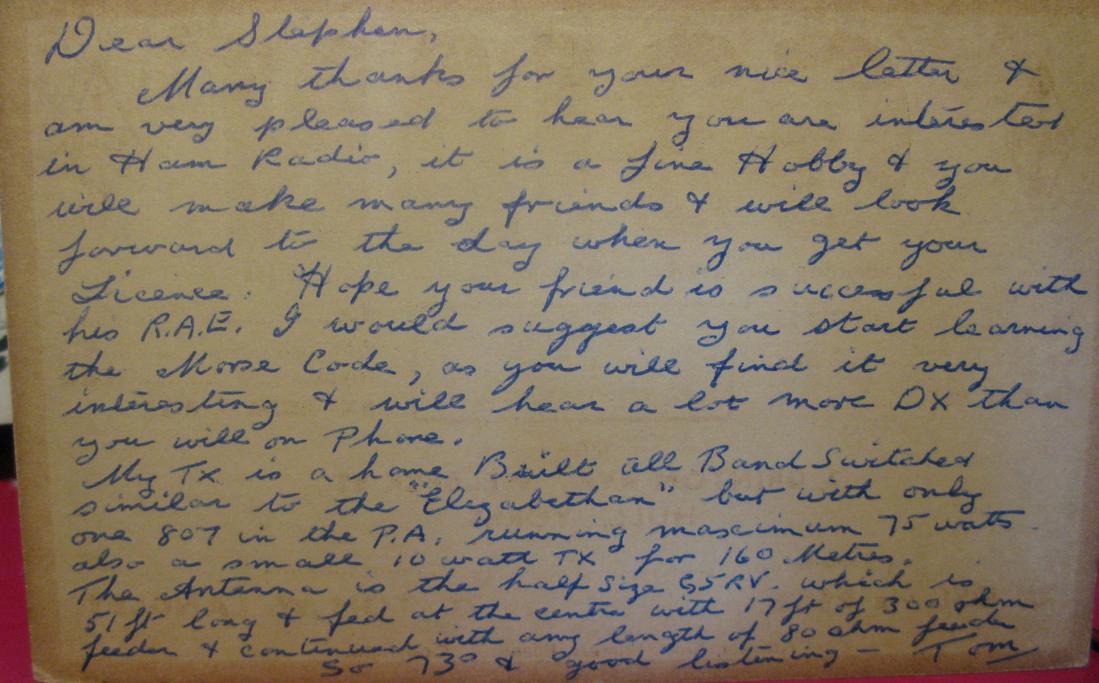 Dear Stephen,
Many thanks for your nice letter &
am very pleased to hear you are interested
in Ham Radio, it is a fine Hobby & you
will make many friends & will look
forward to the day when you get your
Licence. Hope your friend is successful with
his R.A.E. I would suggest you start learning
the Morse Code, as you will find it very
interesting & will hear a lot more DX than
you will on Phone.
My TX is a home Built all Band Switched
similar to the "Elizabethan" but with only
one 807 in the P.A. running maximum 75 watts.
also a small 10 watt TX for 160 Metres.
The Antenna is the half size G5RV. which is
51 ft long & fed at the centre with 17 ft of 300 ohm
feeder & continued with any length of 80 ohm feeder
So 73s & good listening - Tom